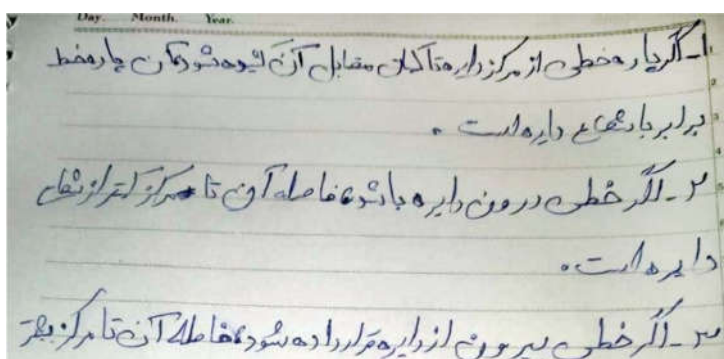 Day. Month. Year.
۱- اگر پاره خطی از مرکز دایره تا کمان مقابل آن کشیده شود، آن پاره خط
برابر با شعاع دایره است.
۲- اگر خطی درون دایره باشد، فاصله آن تا مرکز کمتر از شعاع
دایره است.
۳- اگر خطی بیرون از دایره قرار داده شود، فاصله آن تا مرکز بیشتر